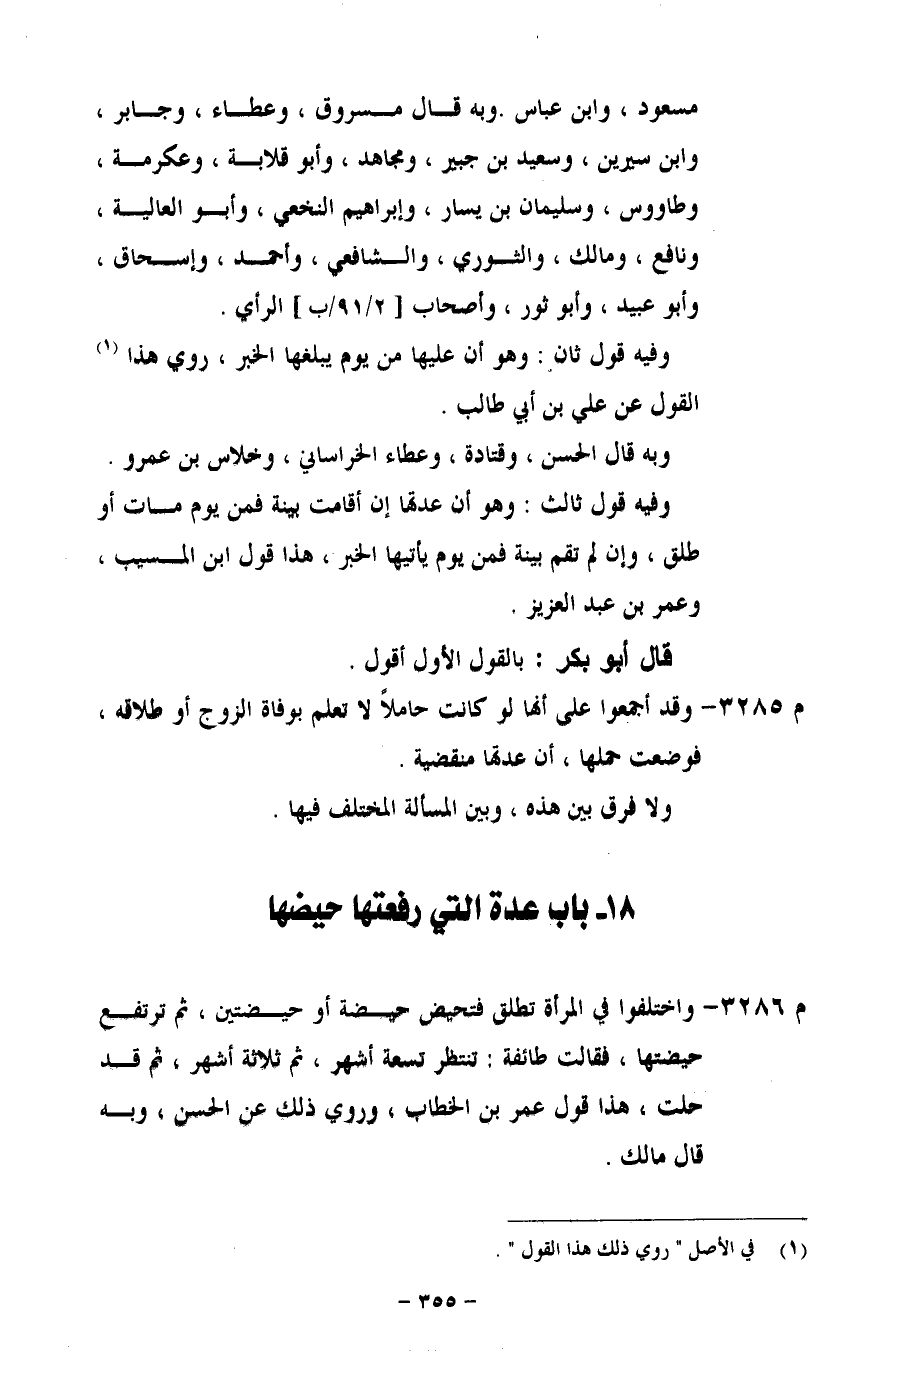 مسعود ، وابن عباس .وبه قـال مـسروق ، وعطـاء ، وجـابر ،
وابن سيرين ، وسعيد بن جبير ، ومجاهد ، وأبو قلابـة ، وعكرمـة ،
وطاووس ، وسليمان بن يسار ، وإبراهيم النخعي ، وأبـو العاليـة ،
ونافع ، ومالك ، والثـوري ، والـشافعي ، وأحمـد ، وإسـحاق ،
وأبو عبيد ، وأبو ثور ، وأصحاب [ ٩١/٢/ب ] الرأي .
وفيه قول ثان : وهو أن عليها من يوم يبلغها الخبر ، روي هذا (١)
القول عن علي بن أبي طالب .
وبه قال الحسن ، وقتادة ، وعطاء الخراساني ، وخلاس بن عمرو .
وفيه قول ثالث : وهو أن عدتها إن أقامت بينة فمن يوم مـات أو
طلق ، وإن لم تقم بينة فمن يوم يأتيها الخبر ، هذا قول ابن المـسيب ،
وعمر بن عبد العزيز .
قال أبو بكر : بالقول الأول أقول .
م ٣٢٨٥- وقد أجمعوا على أنها لو كانت حاملاً لا تعلم بوفاة الزوج أو طلاقه ،
فوضعت حملها ، أن عدتها منقضية .
ولا فرق بين هذه ، وبين المسألة المختلف فيها .
١٨ـ باب عدة التي رفعتها حيضها
م ٣٢٨٦- واختلفوا في المرأة تطلق فتحيض حيـضة أو حيـضتين ، ثم ترتفـع
حيضتها ، فقالت طائفة : تنتظر تسعة أشهر ، ثم ثلاثة أشهر ، ثم قـد
حلت ، هذا قول عمر بن الخطاب ، وروي ذلك عن الحسن ، وبـه
قال مالك .
(١) في الأصل " روي ذلك هذا القول " .
- ٣٥٥ -